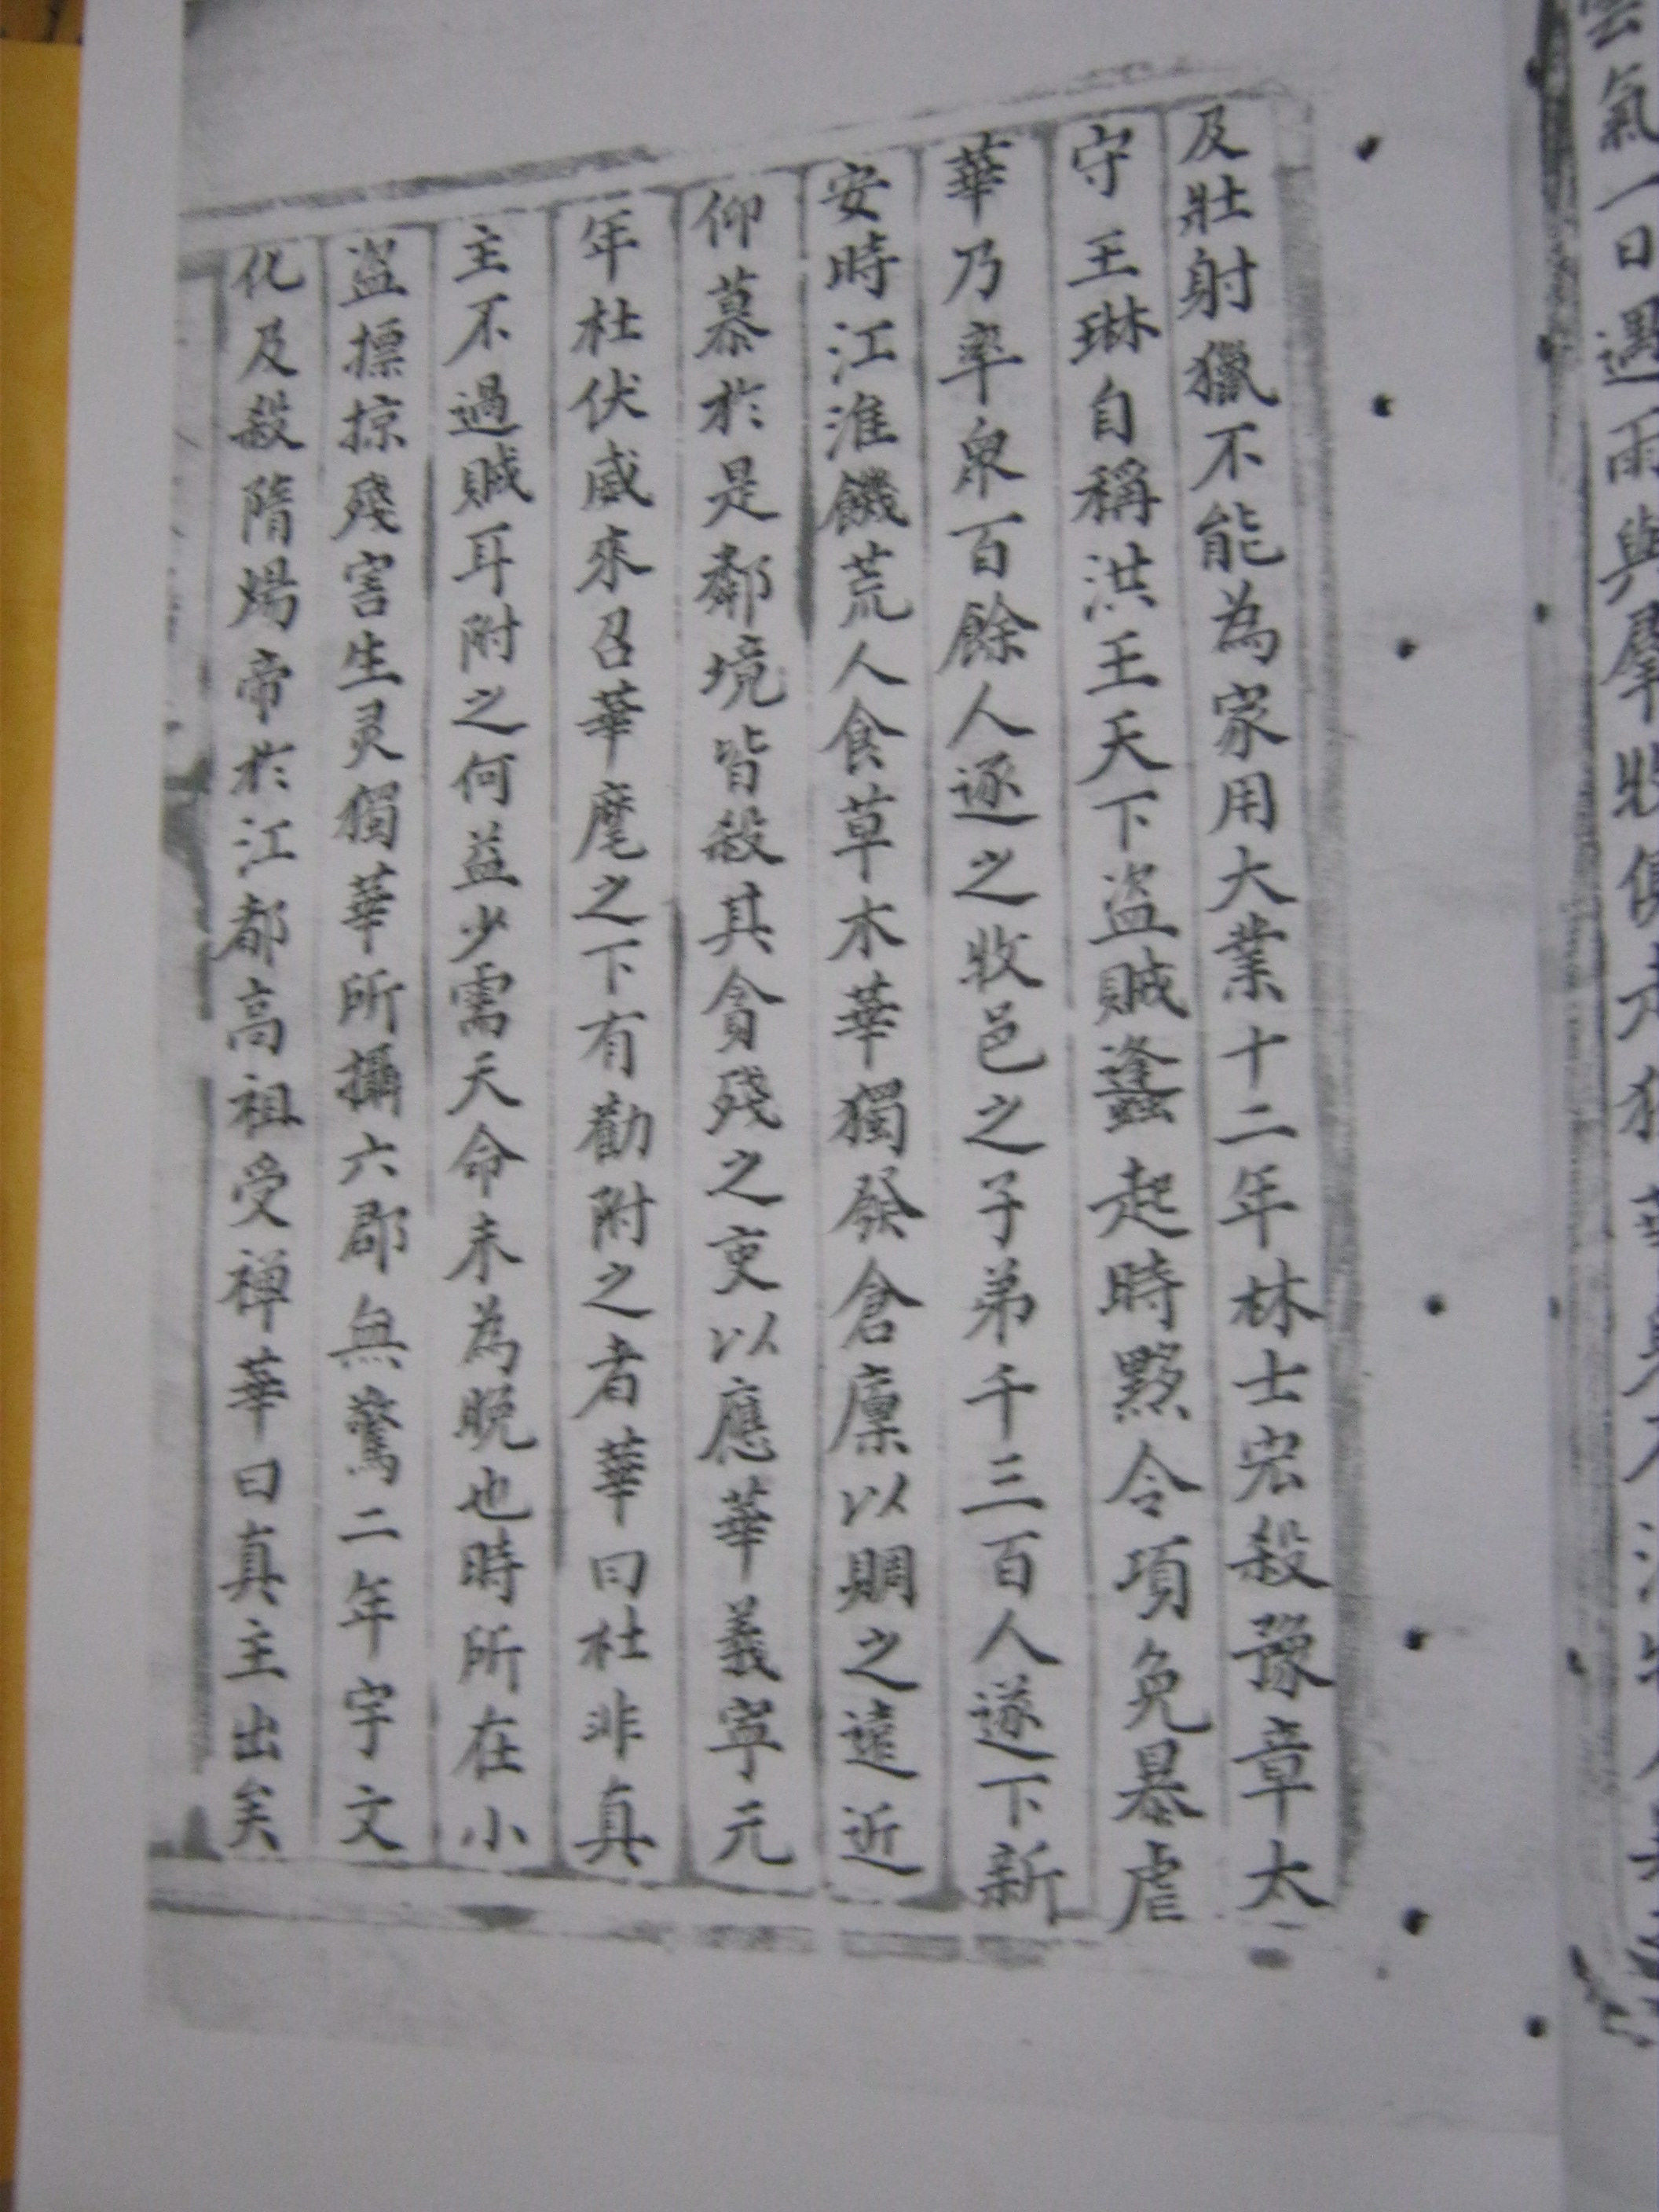 雲氣一日遇雨與羣牧俱走
及壯射獵不能為家用大業十二年林士宏殺豫章太
守王琳自稱洪王天下盜賊逢起時黟令項免暴虐
華乃率泉百餘人逐之牧邑之子弟千三百人遂下新
安時江淮饑荒人食草木華獨發倉廪以賙之遠近
仰慕於是鄰境皆殺其貪殘之吏以應華義寧元
年杜伏威來召華麾之下有勸附之者華曰杜非真
主不過賊耳附之何益少需天命未為晚也時所在小
盜摽掠殘害生灵獨華所攝六郡無驚二年宇文
化及殺隋煬帝於江都高祖受禅華曰真主出矣